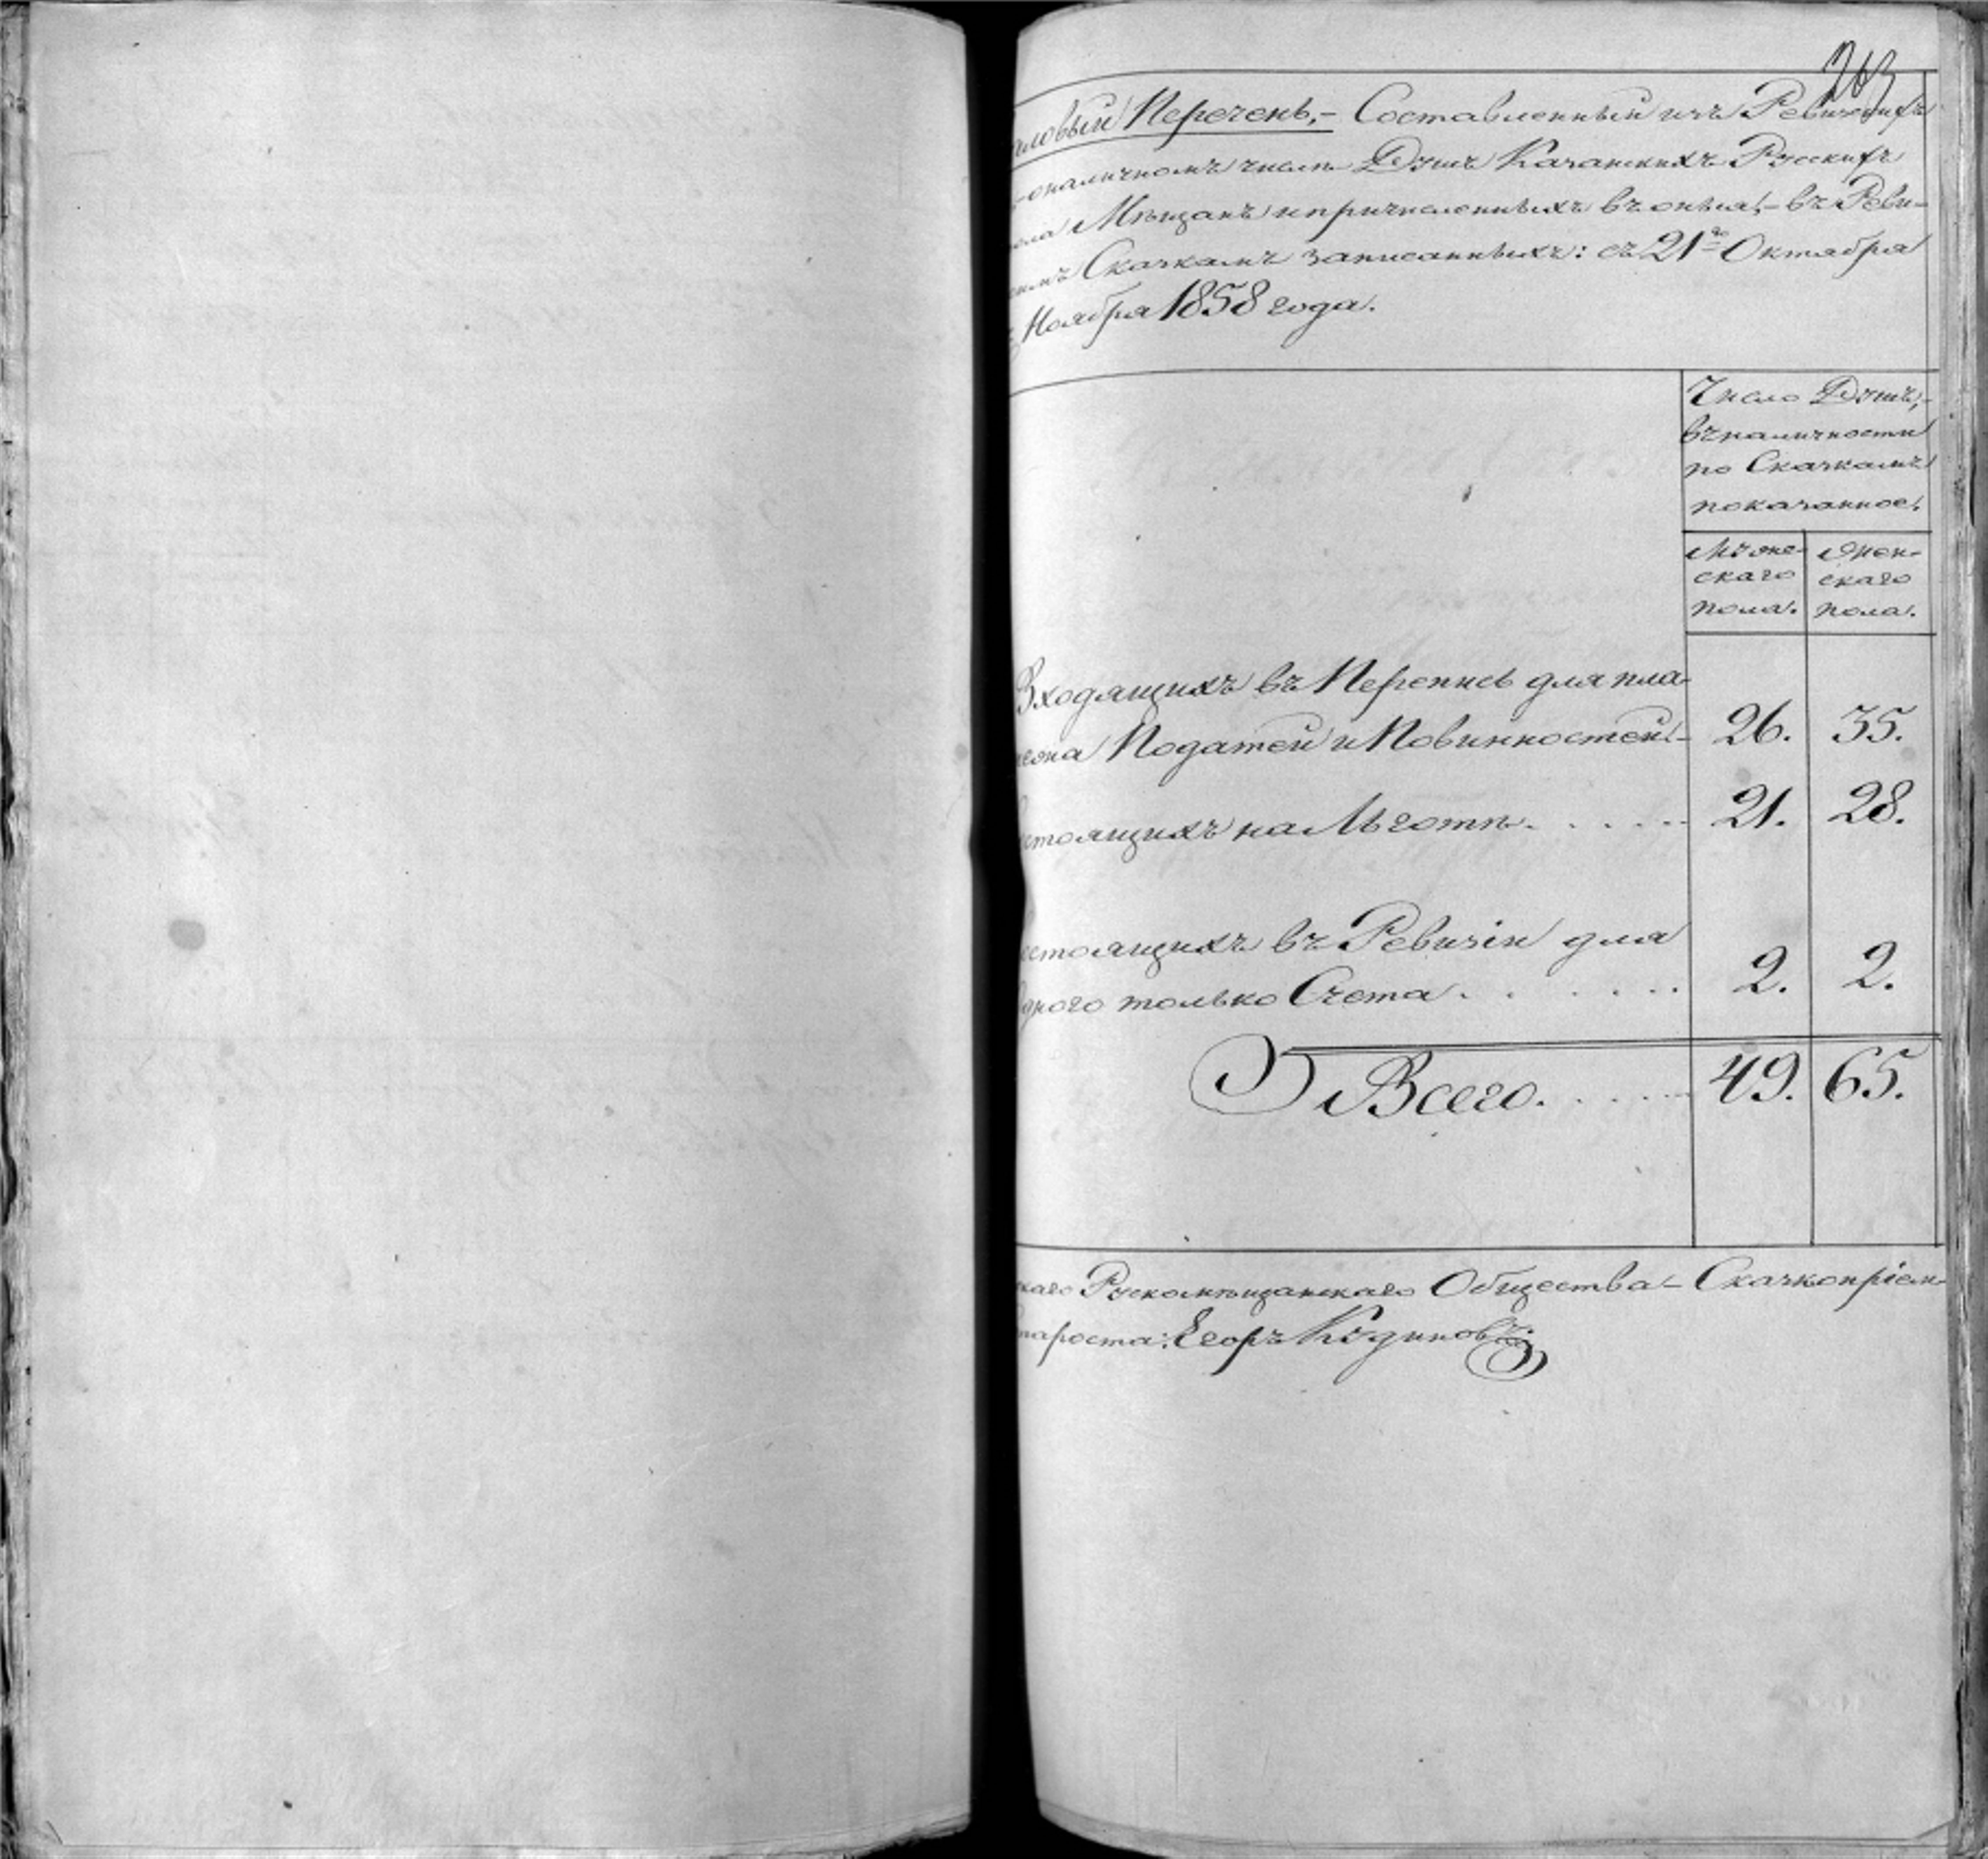 263
аловый Перечень,- Составленный изъ Ревизскихъ
оналичномъ числѣ Душъ Казанскихъ Русскихъ
ела Мѣщанъ и причисленныхъ въ оныя,- въ Реви-
Скаскамъ записанныхъ: съ 21го Октября
Ноября 1858 года.
Число Душъ,-
въ наличности
по Скаскамъ
показанное.
Мъже- Жен-
скаго скаго
пола. пола.
Входящихъ въ Перепись для пла-
Податей и Повинностей - 26. 35.
стоящихъ на Льготѣ. . . . . . 21. 28.
остоящихъ въ Ревизіи для
дного только Счета. . . . . . 2. 2.
Всего. . . . . . 49. 65.
скаго Рускомѣщанскаго Общества - Скаскопріем-
тароста: Егоръ Кудиновъ